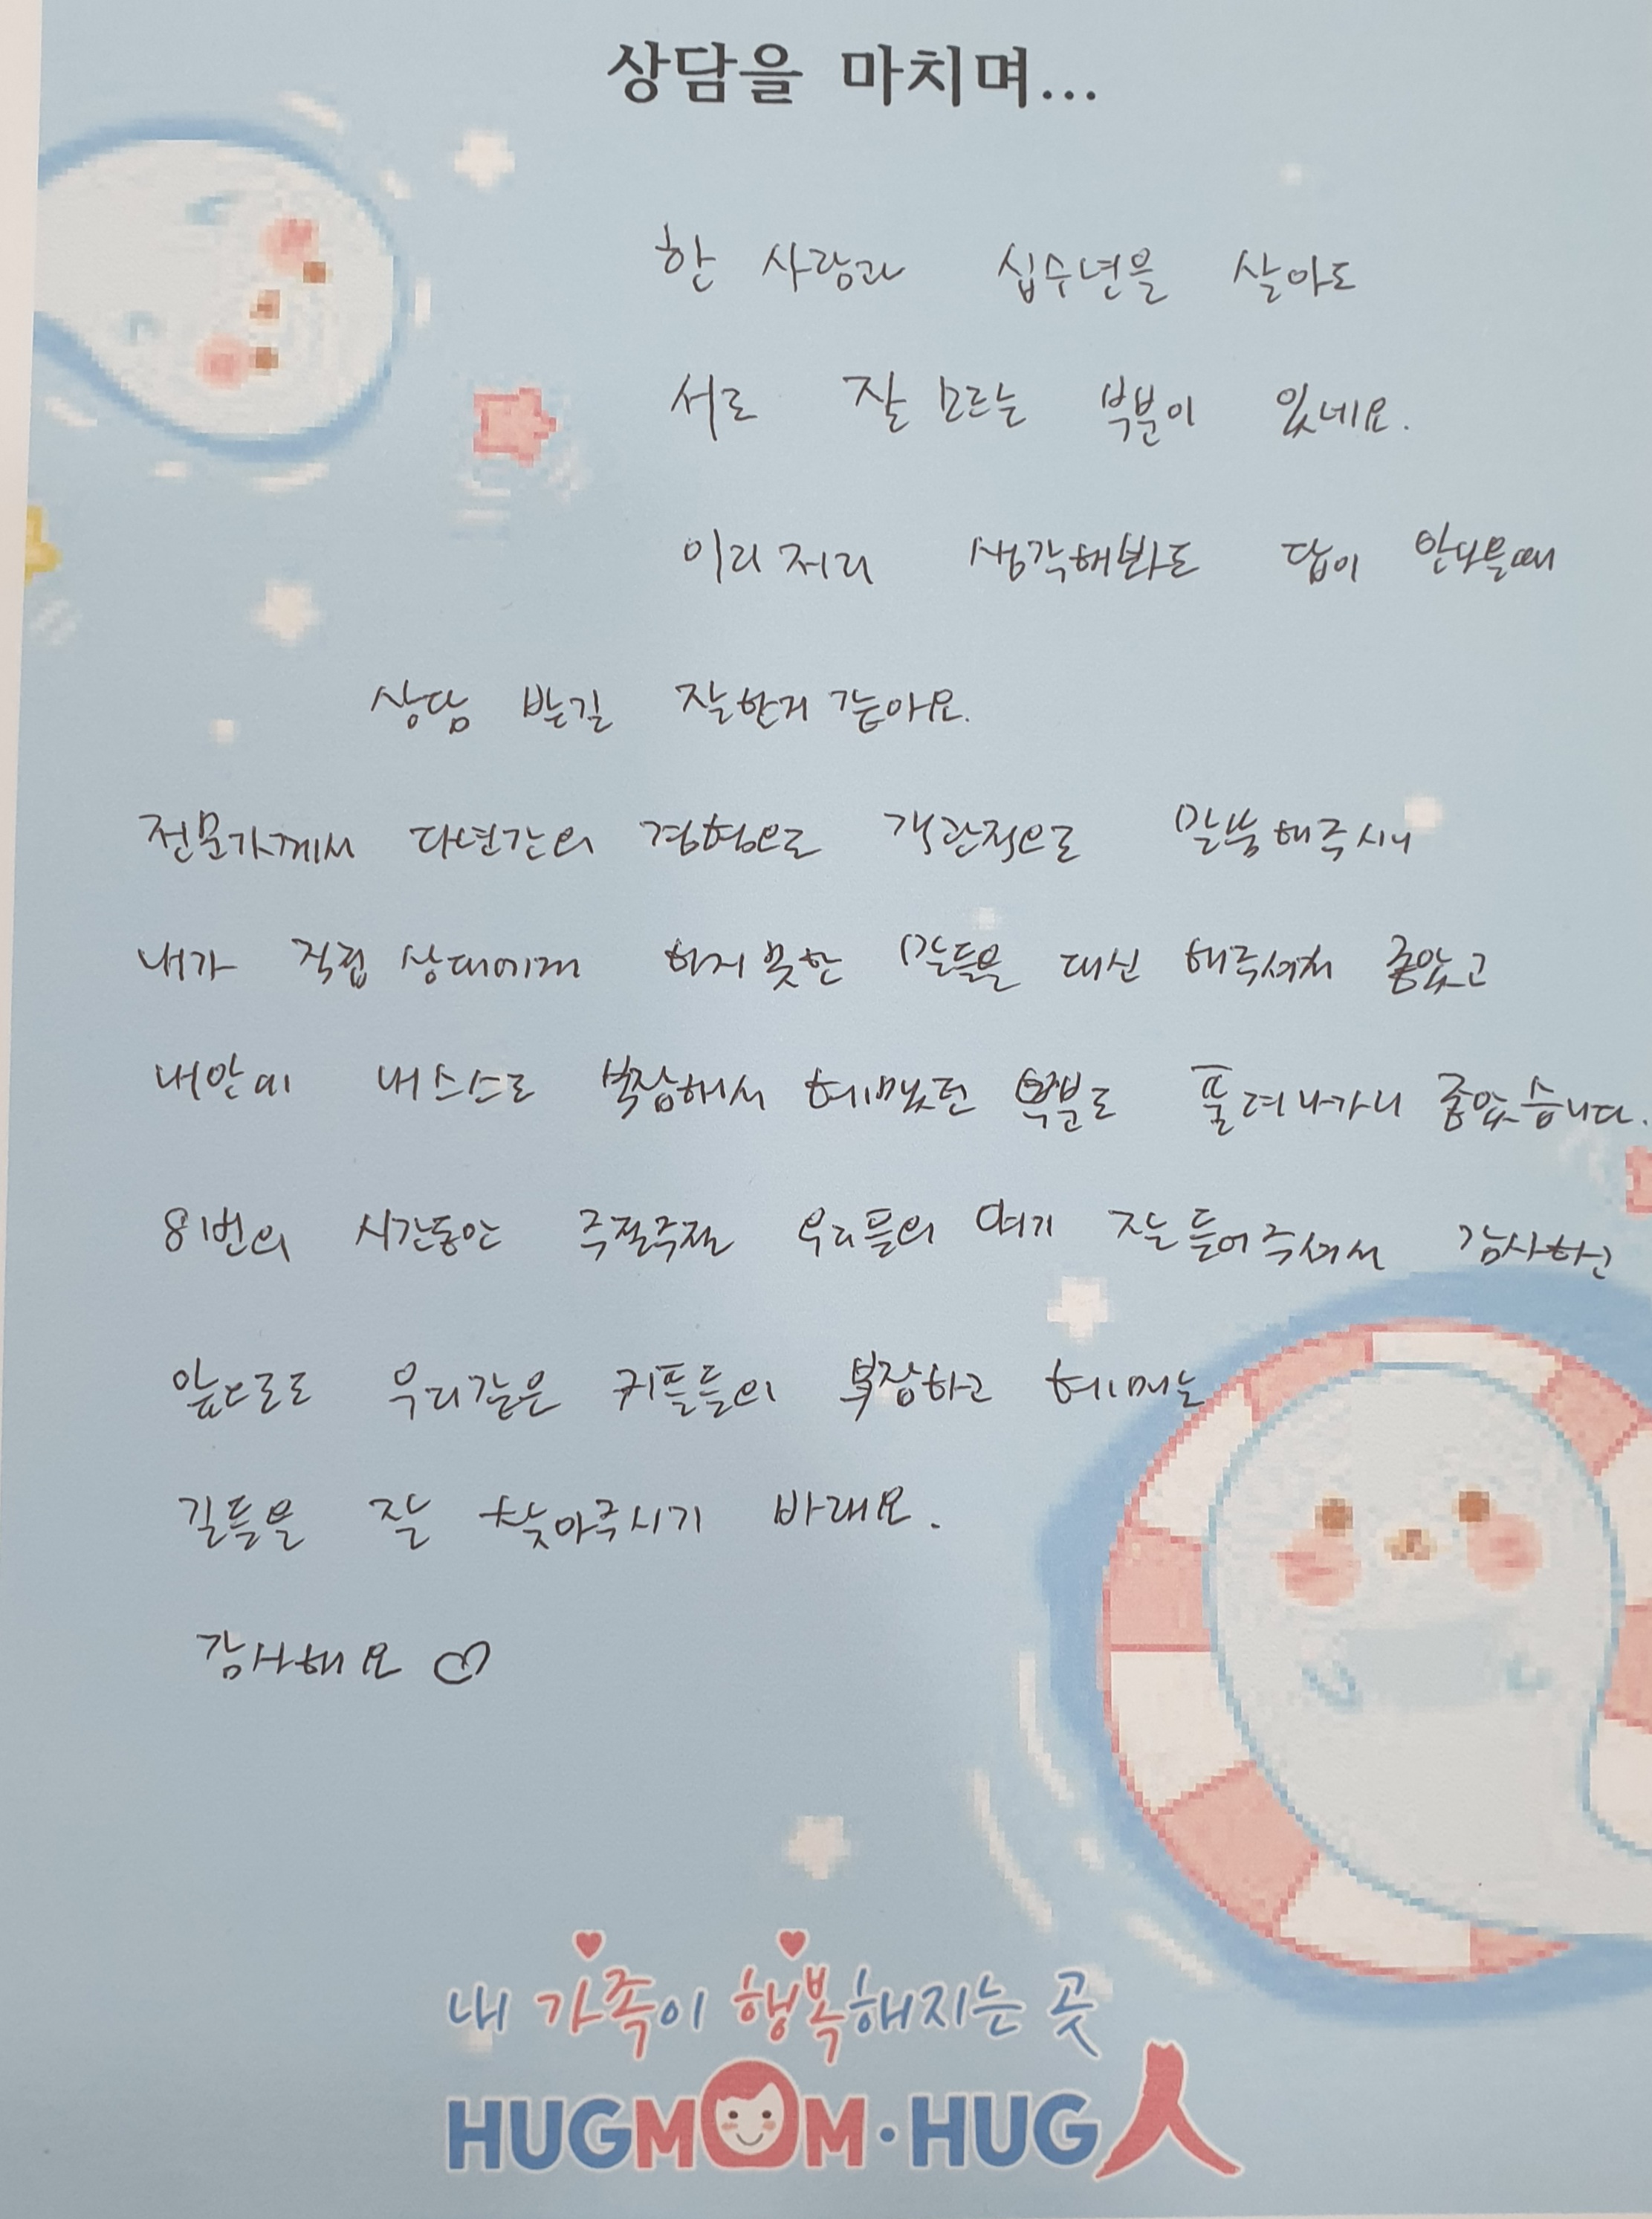 상담을 마치며...
한 사람과 십수년을 살아도
서로 잘 모르는 부분이 있네요.
이리저리 생각해봐도 답이 안나올때
상담 받길 잘한거 같아요.
전문가께서 다년간의 경험으로 객관적으로 말씀해주시니
내가 직접 상대에게 하지 못한 말들을 대신 해주셔서 좋았고
내안에 내 스스로 복잡해서 헤매었던 부분도 풀려나가니 좋았습니다.
8번의 시간동안 주절주절 우리들의 얘기 잘 들어주셔서 감사하고
앞으로도 우리같은 커플들의 복잡하고 헤매는
길들을 잘 찾아주시기 바래요.
감사해요 ♡
내 가족이 행복해지는 곳
HUGMOM·HUG人